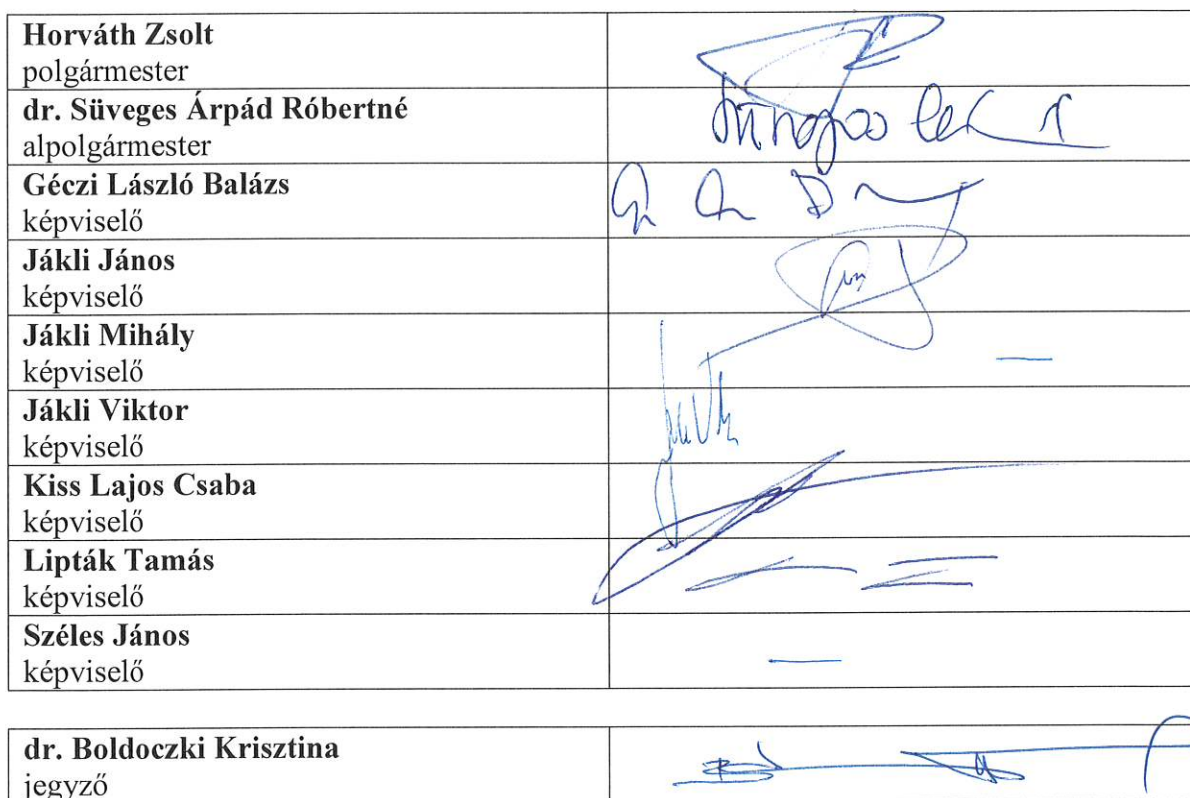 Horváth Zsolt
polgármester
dr. Süveges Árpád Róbertné
alpolgármester
Géczi László Balázs
képviselő
Jákli János
képviselő
Jákli Mihály
képviselő
—
Jákli Viktor
képviselő
Kiss Lajos Csaba
képviselő
Lipták Tamás
képviselő
Széles János
képviselő
—
dr. Boldoczki Krisztina
jegyző